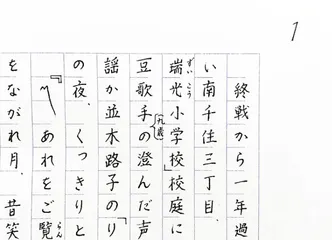 1
終戦から一年過
い南千住三丁目.
瑞光小学校校庭に
ずいこう
豆歌手の澄んだ声
九歳
謡か並木路子の「り
の夜. くっきりと
『〽あれをご覧
らん
をながれ月. 昔笑